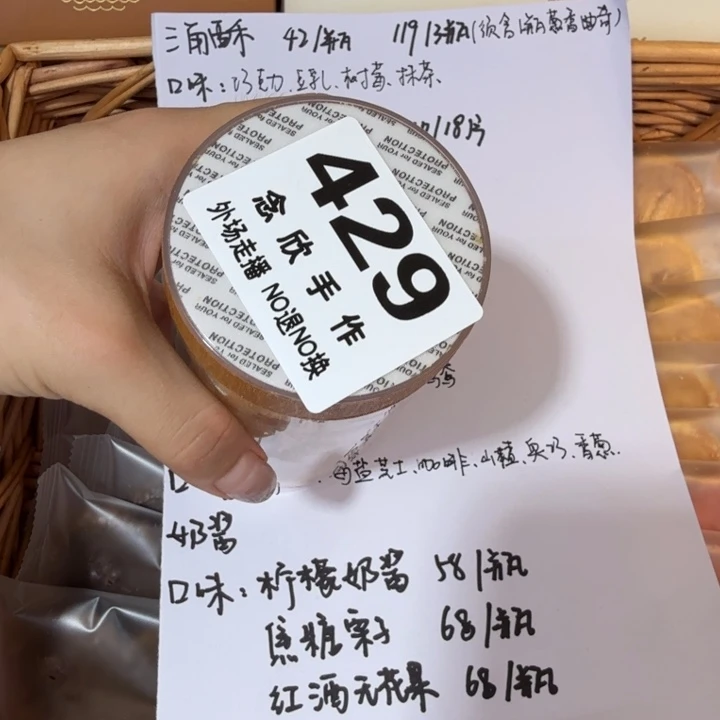 三角酥 42/瓶 119/3瓶(须含1瓶葱香曲奇)
口味:巧克力、豆乳、树莓、抹茶、
/18片
SEALED for YOUR PROTECTION
429
念欣手作
外场走播 NO退NO换
海盐芝士、咖啡、山楂、奥巧、香葱.
奶酱
口味:柠檬奶酱 58/瓶
焦糖栗子 68/瓶
红酒无花果 68/瓶